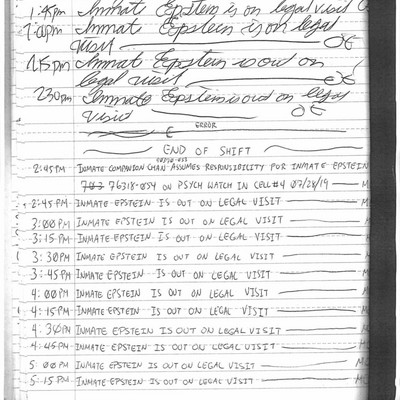 1:45pm Inmat Epstein is on legal visit
2:00pm Inmat Epstein is on legal
visit OE
2:15pm Inmat Epstein is out on
legal visit OE
2:30pm Inmate Epstein is out on legal
visit OE
E ERROR
END OF SHIFT
2:45PM INMATE COMPANION CHAN ASSUMES RESPONSIBILITY FOR INMATE EPSTEIN
76318-054 ON PSYCH WATCH IN CELL#4 07/28/19
2:45PM INMATE EPSTEIN IS OUT ON LEGAL VISIT
3:00PM INMATE EPSTEIN IS OUT ON LEGAL VISIT
3:15PM INMATE EPSTEIN IS OUT ON LEGAL VISIT
3:30PM INMATE EPSTEIN IS OUT ON LEGAL VISIT
3:45PM INMATE EPSTEIN IS OUT ON LEGAL VISIT
4:00PM INMATE EPSTEIN IS OUT ON LEGAL VISIT
4:15PM INMATE EPSTEIN IS OUT ON LEGAL VISIT
4:30PM INMATE EPSTEIN IS OUT ON LEGAL VISIT
4:45PM INMATE EPSTEIN IS OUT ON LEGAL VISIT
5:00PM INMATE EPSTEIN IS OUT ON LEGAL VISIT
5:15PM INMATE EPSTEIN IS OUT ON LEGAL VISIT